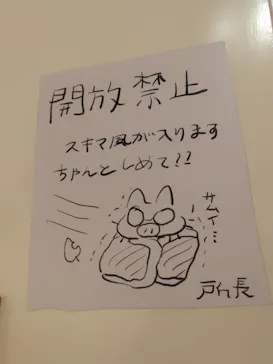 開放禁止
スキマ風が入ります
ちゃんとしめて!!
サムイ…
所長